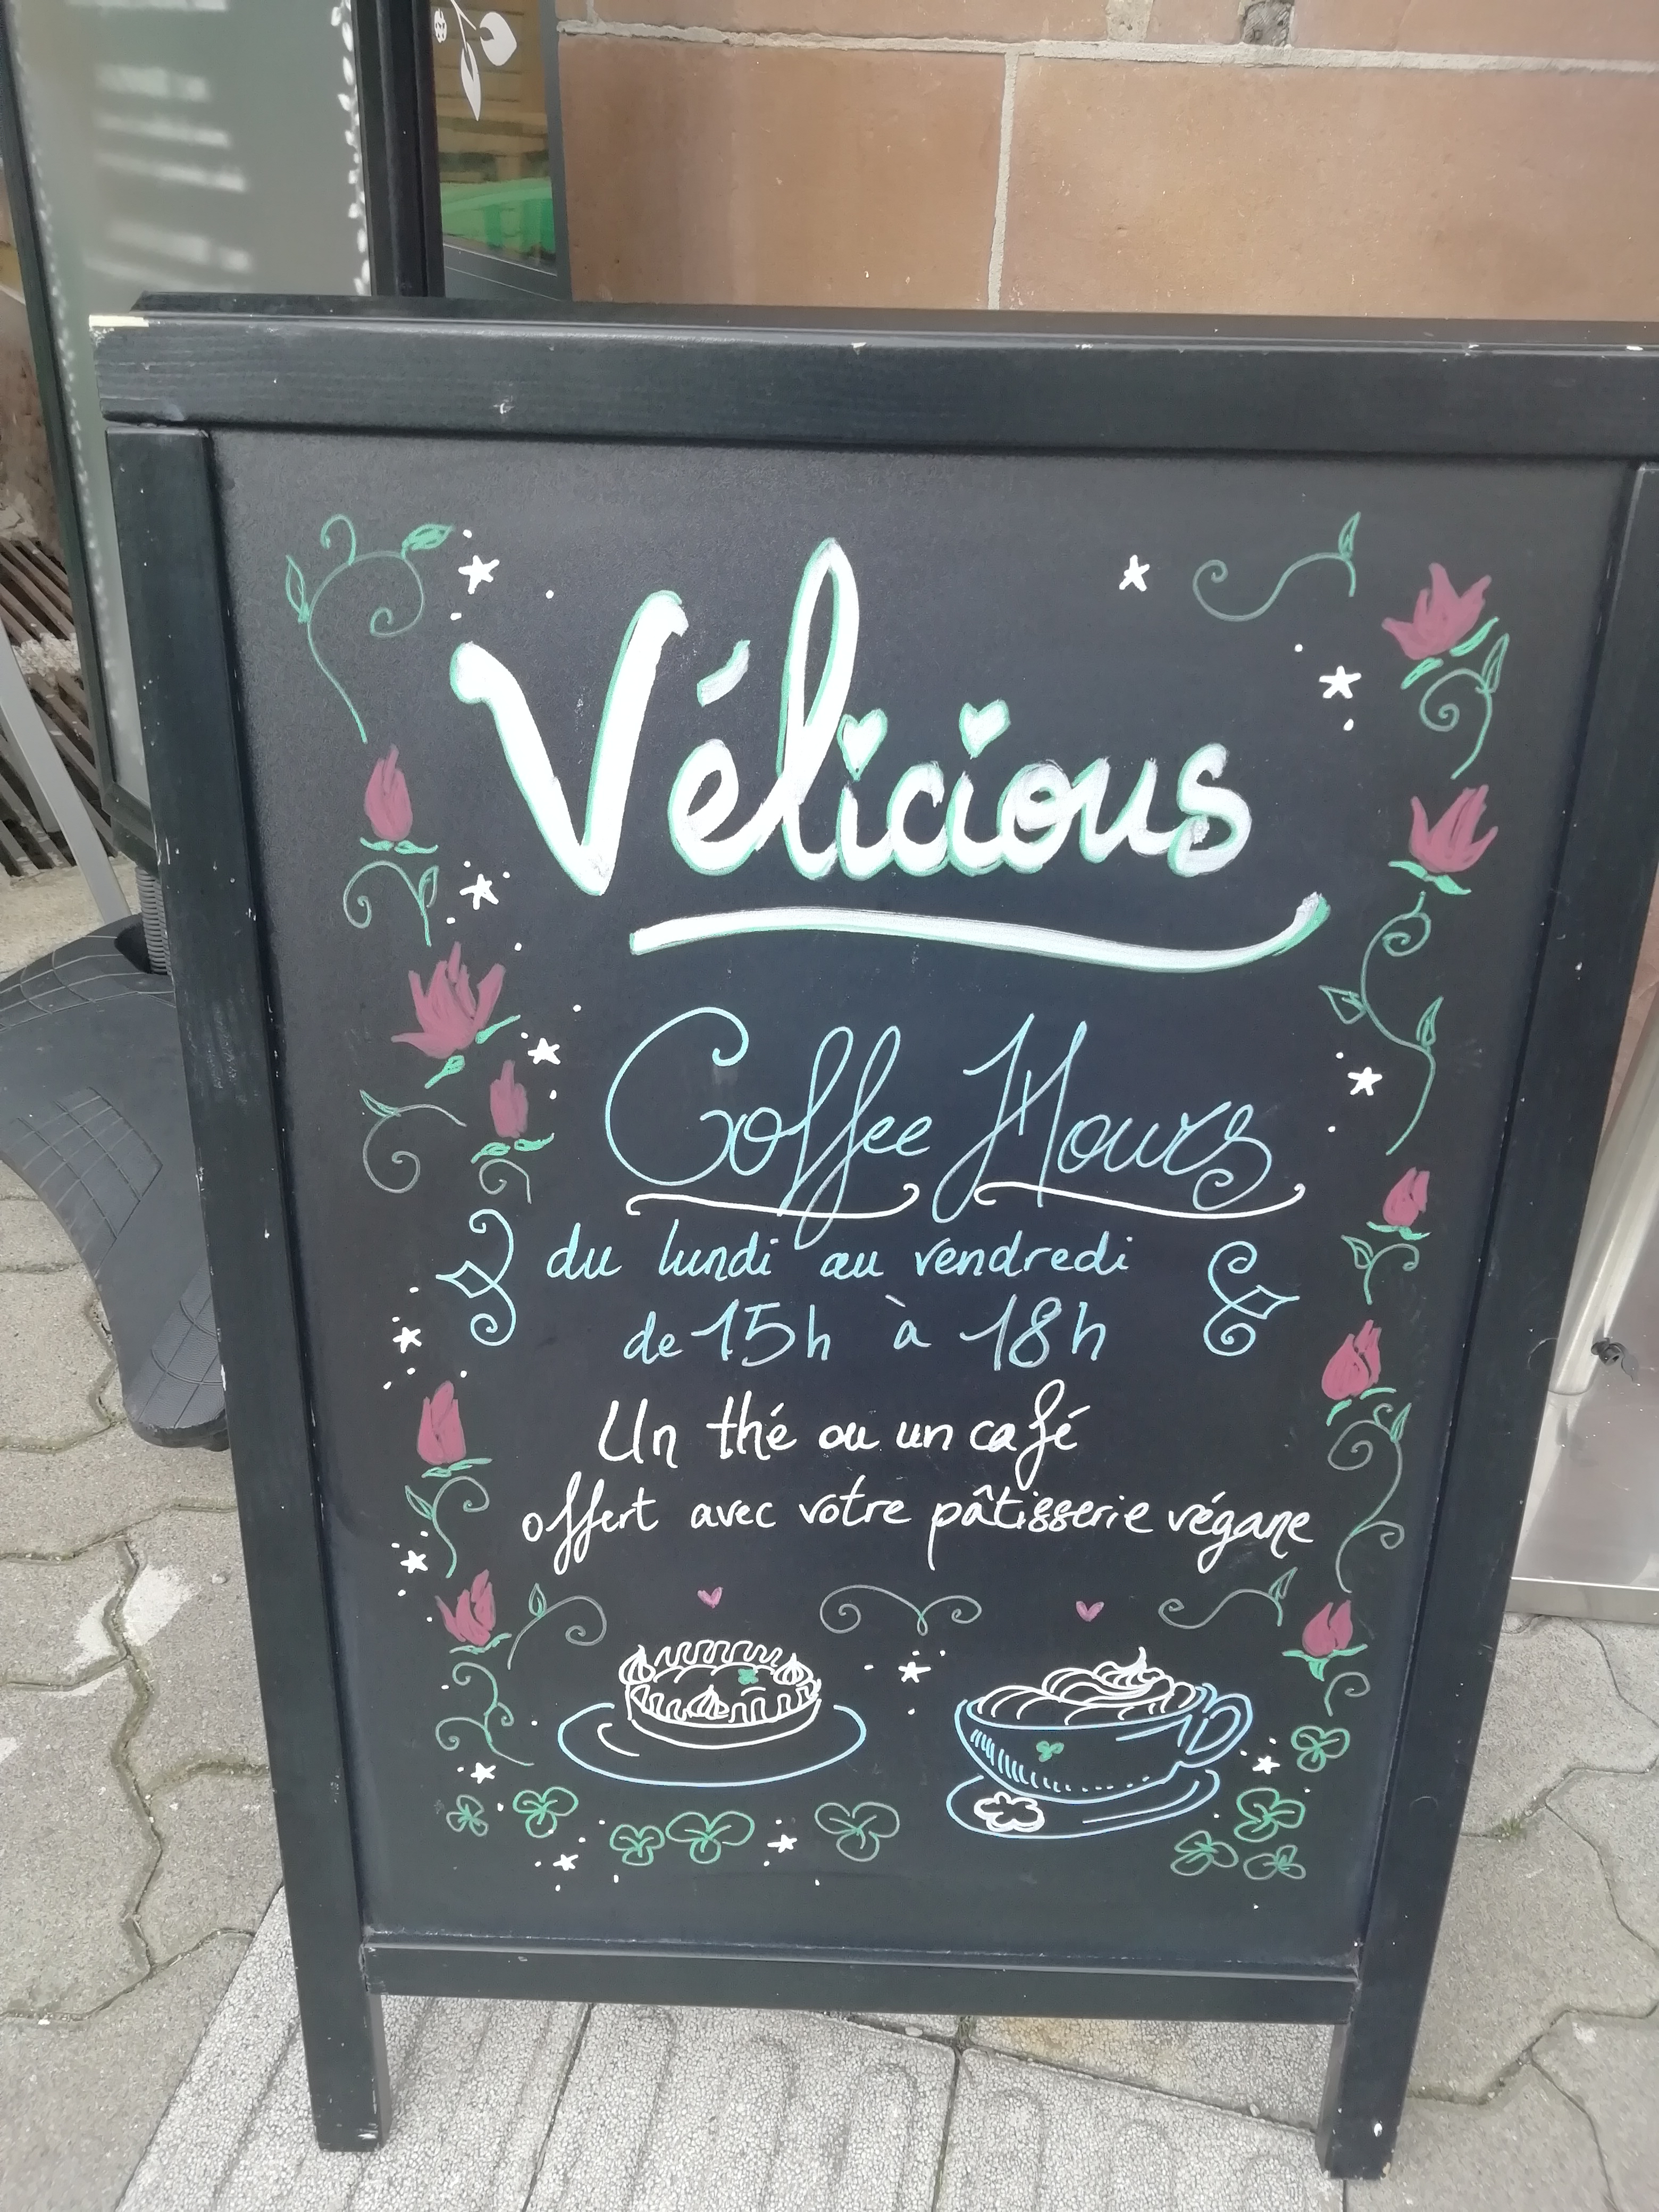 Vélicious
Coffee Hours
du lundi au vendredi
de 15h à 18h
Un thé ou un café
offert avec votre pâtisserie végane